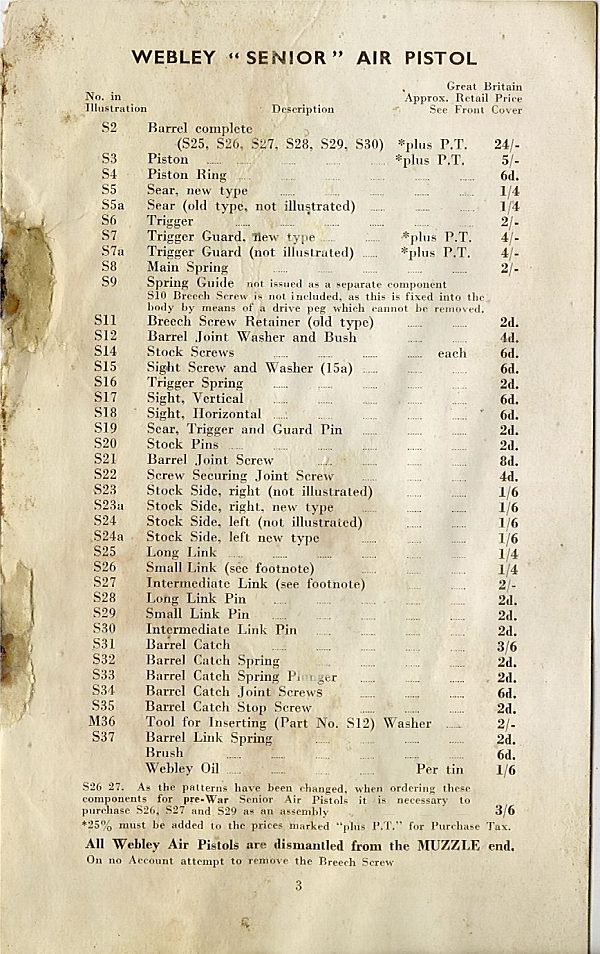 WEBLEY “SENIOR” AIR PISTOL
No. in Illustration Description Great Britain Approx. Retail Price See Front Cover
S2 Barrel complete
(S25, S26, S27, S28, S29, S30) *plus P.T. 24/-
S3 Piston ...... *plus P.T. 5/-
S4 Piston Ring 6d.
S5 Sear, new type 1/4
S5a Sear (old type, not illustrated) 1/4
S6 Trigger 2/-
S7 Trigger Guard, new type *plus P.T. 4/-
S7a Trigger Guard (not illustrated) *plus P.T. 4/-
S8 Main Spring 2/-
S9 Spring Guide not issued as a separate component
S10 Breech Screw is not included, as this is fixed into the
body by means of a drive peg which cannot be removed.
S11 Breech Screw Retainer (old type) 2d.
S12 Barrel Joint Washer and Bush 4d.
S14 Stock Screws each 6d.
S15 Sight Screw and Washer (15a) 6d.
S16 Trigger Spring 2d.
S17 Sight, Vertical 6d.
S18 Sight, Horizontal 6d.
S19 Sear, Trigger and Guard Pin 2d.
S20 Stock Pins 2d.
S21 Barrel Joint Screw 8d.
S22 Screw Securing Joint Screw 4d.
S23 Stock Side, right (not illustrated) 1/6
S23a Stock Side, right, new type 1/6
S24 Stock Side, left (not illustrated) 1/6
S24a Stock Side, left new type 1/6
S25 Long Link 1/4
S26 Small Link (see footnote) 1/4
S27 Intermediate Link (see footnote) 2/-
S28 Long Link Pin 2d.
S29 Small Link Pin 2d.
S30 Intermediate Link Pin 2d.
S31 Barrel Catch 3/6
S32 Barrel Catch Spring 2d.
S33 Barrel Catch Spring Plunger 2d.
S34 Barrel Catch Joint Screws 6d.
S35 Barrel Catch Stop Screw 2d.
M36 Tool for Inserting (Part No. S12) Washer 2/-
S37 Barrel Link Spring 2d.
Brush 6d.
Webley Oil Per tin 1/6
S26 27. As the patterns have been changed, when ordering these
components for pre-War Senior Air Pistols it is necessary to
purchase S26, S27 and S29 as an assembly 3/6
*25% must be added to the prices marked “plus P.T.” for Purchase Tax.
All Webley Air Pistols are dismantled from the MUZZLE end.
On no Account attempt to remove the Breech Screw
3